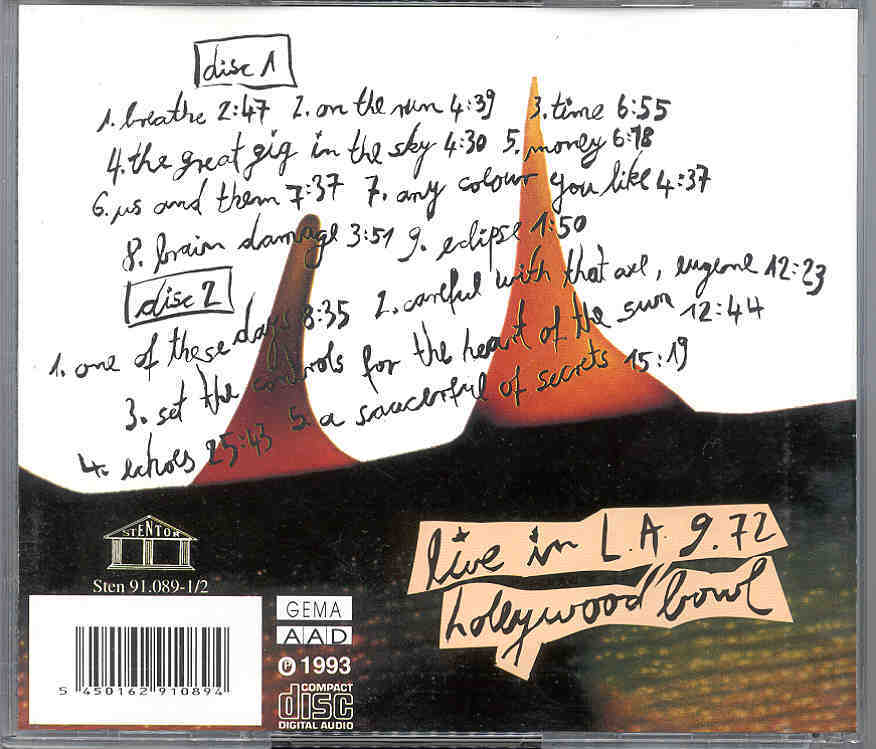 disc 1
1. breathe 2:47 2. on the run 4:39 3. time 6:55
4. the great gig in the sky 4:30 5. money 6:18
6. us and them 7:37 7. any colour you like 4:37
8. brain damage 3:51 9. eclipse 1:50
disc 2
1. one of these days 8:35 2. careful with that axe, eugene 12:23
3. set the controls for the heart of the sun 12:44
4. echoes 25:43 5. a saucerful of secrets 15:19
STENTOR
Sten 91.089-1/2
live in L.A. 9.72
hollywood bowl
GEMA
AAD
℗ 1993
COMPACT
disc
DIGITAL AUDIO
5 450162 910894